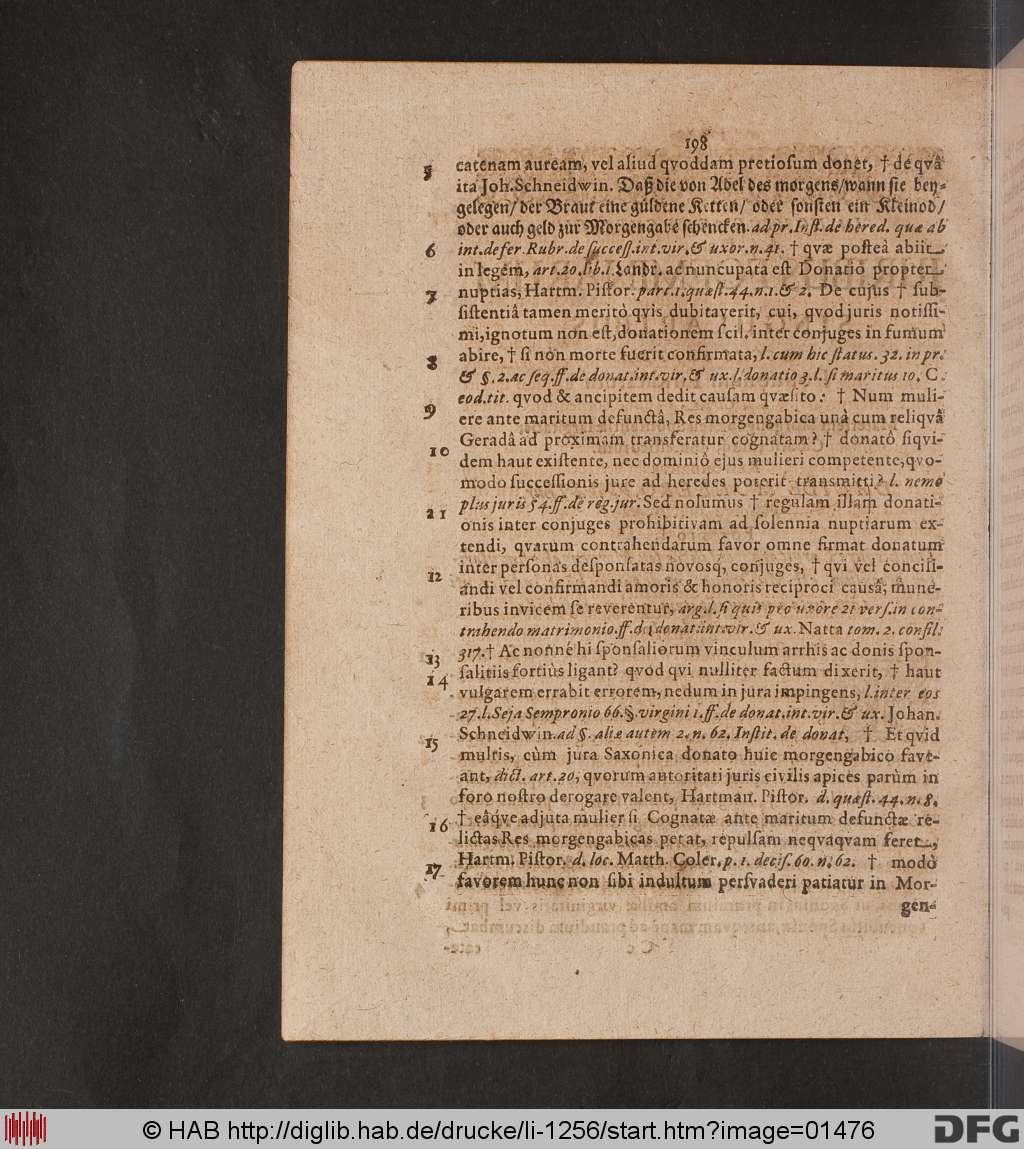 198
5 catenam auream, vel aliud qvoddam pretiosum donet, † de qvâ
ita Joh. Schneidwin. Daß die von Adel des morgens/wann sie bey-
gelegen/ der Braut eine güldene Ketten/ oder sonsten ein Kleinod/
oder auch geld zur Morgengabe schencken. ad pr. Inst. de hered. quæ ab
6 int. defer. Rubr. de success. int. vir. & uxor. n. 41. † qvæ posteà abiit
in legem, art. 20. lib. 1. Landr. ac nuncupata est Donatio propter
7 nuptias, Hartm. Pistor. part. 1. quæst. 44. n. 1. & 2. De cujus † sub-
sistentiâ tamen meritò qvis dubitaverit, cui, qvod juris notissi-
mi, ignotum non est, donationem scil. inter conjuges in fumum
8 abire, † si non morte fuerit confirmata, l. cum hic status. 32. in pr.
& §. 2. ac seq. ff. de donat. int. vir. & ux. l. donatio 3. l. si maritus 10. C.
9 eod. tit. qvod & ancipitem dedit causam qvæsito: † Num muli-
ere ante maritum defunctâ, Res morgengabica unà cum reliqvâ
10 Geradâ ad proximam transferatur cognatam? † donatô siqvi-
dem haut existente, nec dominiô ejus mulieri competente, qvo-
modo successionis jure ad heredes poterit transmitti? l. nemo
11 plus juris 54. ff. de reg. jur. Sed nolumus † regulam illam donati-
onis inter conjuges prohibitivam ad solennia nuptiarum ex-
tendi, qvarum contrahendarum favor omne firmat donatum
12 inter personas desponsatas novosq́, conjuges, † qvi vel concili-
andi vel confirmandi amoris & honoris reciproci causâ, mune-
ribus invicem se reverentur, arg. l. si quis pro uxore 21 vers. in con-
trahendo matrimonio. ff. de donat. int. vir. & ux. Natta tom. 2. consil.
13 317. † Ac nonne hi sponsaliorum vinculum arrhis ac donis spon-
14 salitiis fortiùs ligant? qvod qvi nulliter factum dixerit, † haut
vulgarem errabit errorem, nedum in jura impingens, l. inter eos
27. l. Seja Sempronio 66. §. virgini 1. ff. de donat. int. vir. & ux. Johan.
15 Schneidwin. ad §. aliæ autem 2. n. 62. Instit. de donat. † Et qvid
multis, cùm jura Saxonica donato huic morgengabico fave-
ant, dict. art. 20, qvorum autoritati juris civilis apices parùm in
foro nostro derogare valent, Hartman. Pistor. d. quæst. 44. n. 8.
16 † eâqve adjuta mulier si Cognatæ ante maritum defunctæ re-
lictas Res morgengabicas petat, repulsam neqvaqvam feret,
17 Hartm. Pistor. d. loc. Matth. Coler. p. 1. decis. 60. n. 62. † modò
favorem hunc non sibi indultum persvaderi patiatur in Mor-
gen-
© HAB http://diglib.hab.de/drucke/li-1256/start.htm?image=01476
DFG